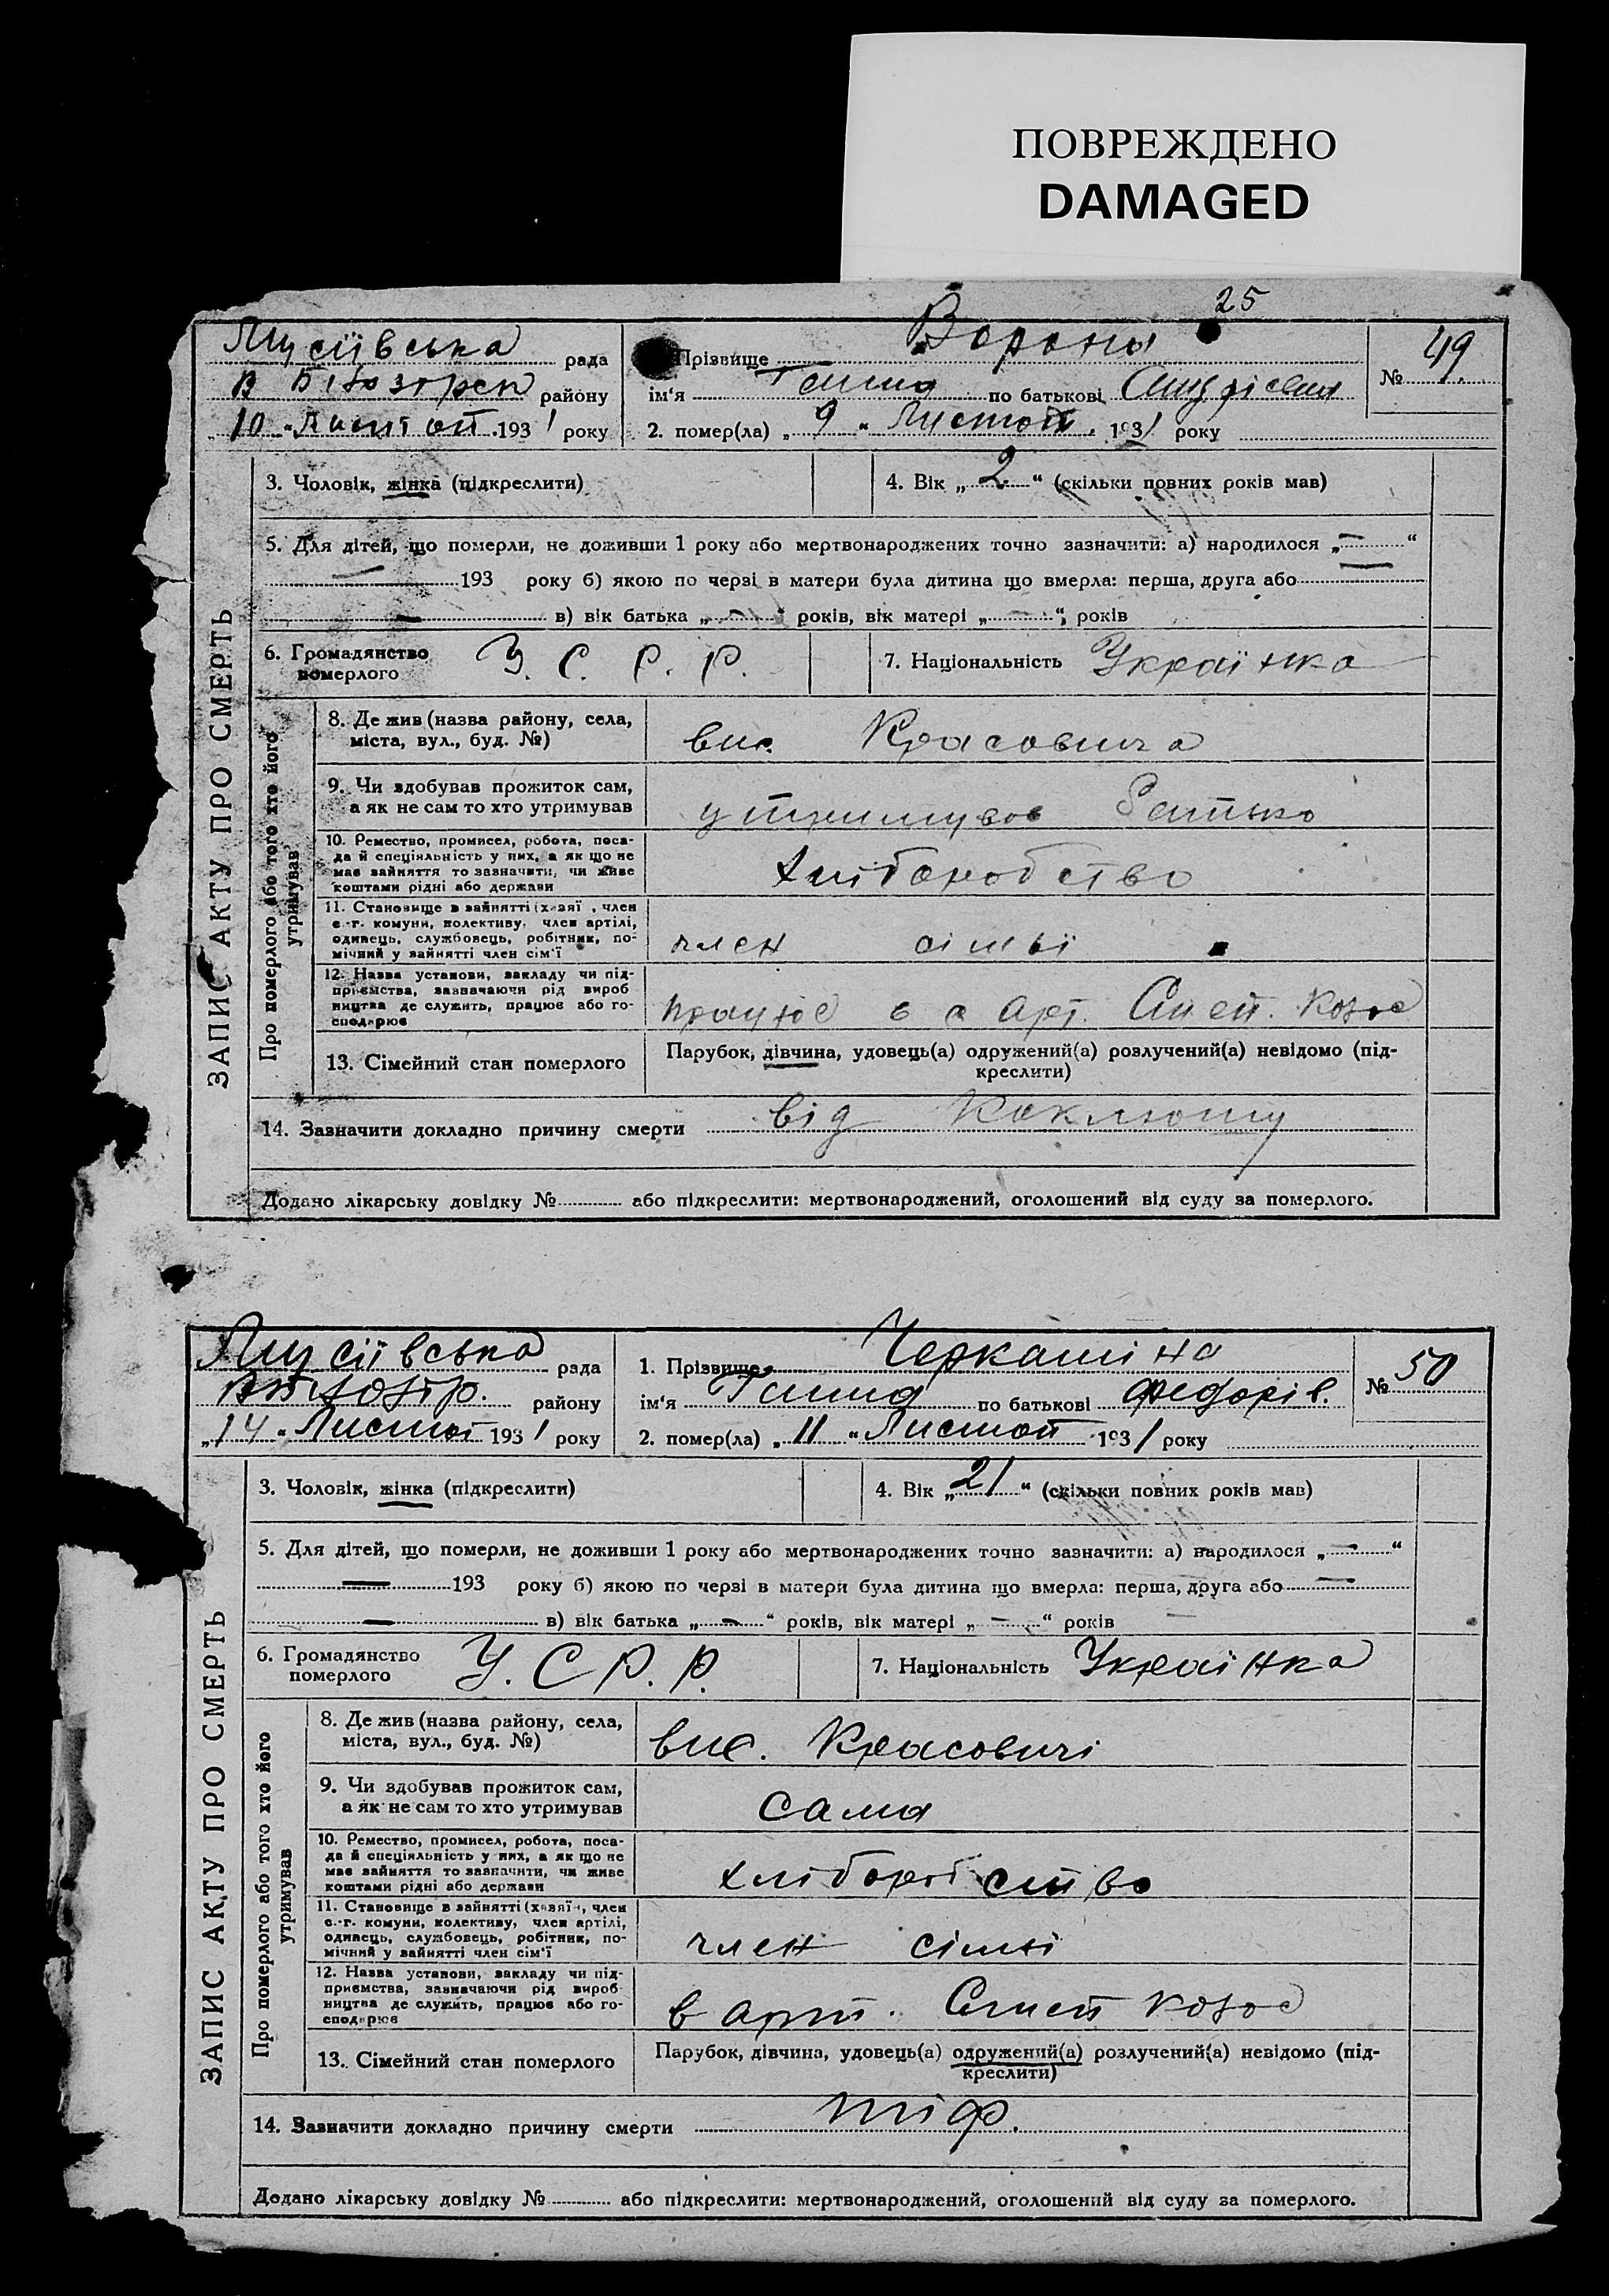 ПОВРЕЖДЕНО
DAMAGED
25
Мусіївська рада
району
„10“ Листоп 1931 року
Прізвище Ворона
ім‘я Ганна по батькові Андрієвна
2. помер(ла) „9“ Листоп. 1931 року
№ 49.
ЗАПИС АКТУ ПРО СМЕРТЬ
3. Чоловік, жінка (підкреслити)
4. Вік „2“ (скільки повних років мав)
5. Для дітей, що померли, не доживши 1 року або мертвонароджених точно зазначити: а) народилося „—“
— 193 року б) якою по черзі в матери була дитина що вмерла: перша, друга або —
— в) вік батька „—“ років, вік матері „—“, років
6. Громадянство
померлого
У. С. Р. Р.
7. Національність Українка
Про померлого або того хто його
утримував
8. Де жив (назва району, села,
міста, вул., буд. №)
вис. Красовича
9. Чи здобував прожиток сам,
а як не сам то хто утримував
утримував батько
10. Ремество, промисел, робота, поса-
да й спеціяльність у них, а як що не
має зайняття то зазначити, чи живе
коштами рідні або держави
хліборобство
11. Становище в зайнятті (хазяї , член
с.-г. комуни, колективу, член артілі,
одинець, службовець, робітник, по-
мічний у зайнятті член сім‘ї
член сімьї
12. Назва установи, закладу чи під-
приємства, зазначаючи рід вироб
ництва де служить, працює або го-
сподарює
працює в с арт.
13. Сімейний стан померлого
Парубок, дівчина, удовець(а) одружений(а) розлучений(а) невідомо (під-
креслити)
14. Зазначити докладно причину смерти від коклюшу
Додано лікарську довідку № або підкреслити: мертвонароджений, оголошений від суду за померлого.
Мусіївська рада
району
„14“ Листоп 1931 року
1. Прізвище Черкашіна
ім‘я Ганна по батькові Федорів.
2. помер(ла) „11“ Листоп 1931 року
№ 50
ЗАПИС АКТУ ПРО СМЕРТЬ
3. Чоловік, жінка (підкреслити)
4. Вік „21“ (скільки повних років мав)
5. Для дітей, що померли, не доживши 1 року або мертвонароджених точно зазначити: а) народилося „—“
— 193 року б) якою по черзі в матери була дитина що вмерла: перша, друга або —
— в) вік батька „—“ років, вік матері „—“ років
6. Громадянство
померлого
У. С Р. Р.
7. Національність Українка
Про померлого або того хто його
утримував
8. Де жив (назва району, села,
міста, вул., буд. №)
вис. Красовичі
9. Чи здобував прожиток сам,
а як не сам то хто утримував
сама
10. Ремество, промисел, робота, поса-
да й спеціяльність у них, а як що не
має зайняття то зазначити, чи живе
коштами рідні або держави
хліборобство
11. Становище в зайнятті (хазяї , член
с.-г. комуни, колективу, член артілі,
одинець, службовець, робітник, по-
мічний у зайнятті член сім‘ї
член сімї
12. Назва установи, закладу чи під-
приємства, зазначаючи рід вироб
ництва де служить, працює або го-
сподарює
в арт.
13. Сімейний стан померлого
Парубок, дівчина, удовець(а) одружений(а) розлучений(а) невідомо (під-
креслити)
14. Зазначити докладно причину смерти тіф.
Додано лікарську довідку № або підкреслити: мертвонароджений, оголошений від суду за померлого.